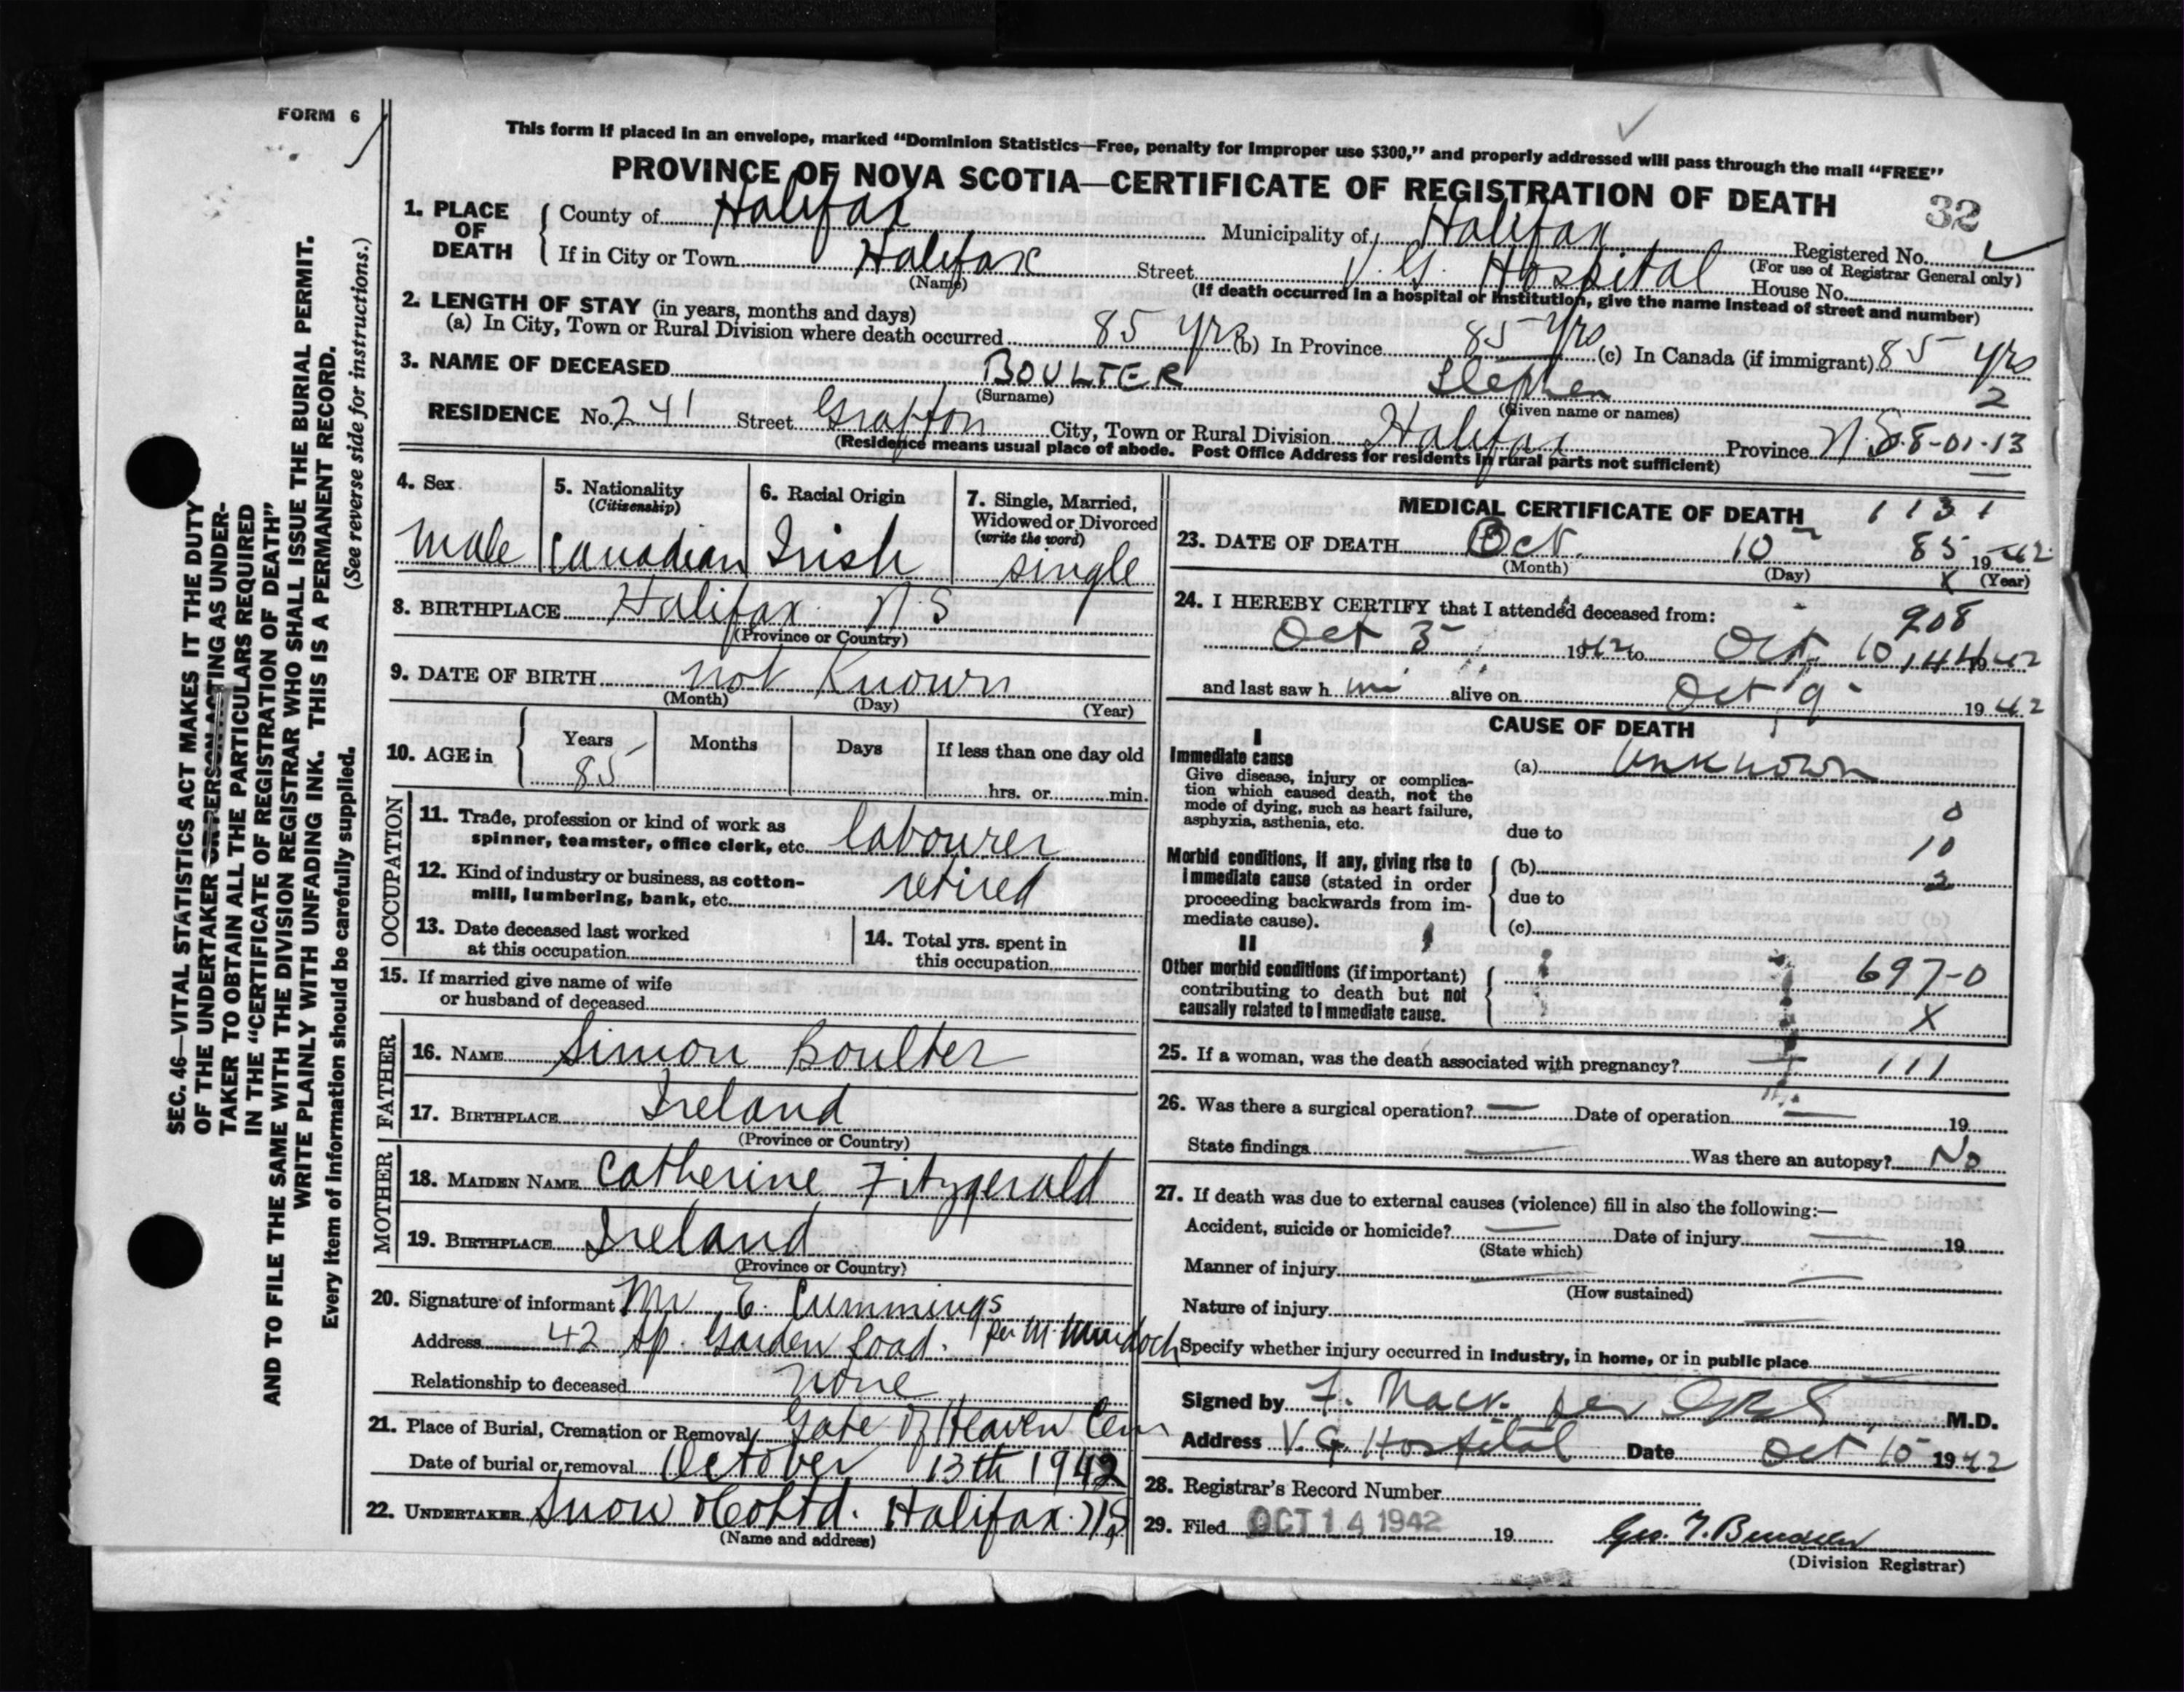 FORM 6
This form if placed in an envelope, marked "Dominion Statistics—Free, penalty for improper use $300," and properly addressed will pass through the mail "FREE"
PROVINCE OF NOVA SCOTIA—CERTIFICATE OF REGISTRATION OF DEATH
32
1. PLACE OF DEATH
County of Halifax Municipality of Halifax Registered No.
(For use of Registrar General only)
If in City or Town Halifax Street V.G. Hospital House No.
(Name) (If death occurred in a hospital or institution, give the name instead of street and number)
2. LENGTH OF STAY (in years, months and days)
(a) In City, Town or Rural Division where death occurred 85 yrs (b) In Province 85 yrs (c) In Canada (if immigrant) 85 yrs
3. NAME OF DECEASED BOULTER Stephen 2
(Surname) (Given name or names)
RESIDENCE No. 241 Street Grafton City, Town or Rural Division Halifax Province N.S. 8-01-13
(Residence means usual place of abode. Post Office Address for residents in rural parts not sufficient)
4. Sex
male
5. Nationality
(Citizenship)
Canadian
6. Racial Origin
Irish
7. Single, Married,
Widowed or Divorced
(write the word)
single
8. BIRTHPLACE Halifax N.S
(Province or Country)
9. DATE OF BIRTH not Known
(Month) (Day) (Year)
10. AGE in
Years Months Days If less than one day old
85 hrs. or min.
OCCUPATION
11. Trade, profession or kind of work as
spinner, teamster, office clerk, etc. labourer
12. Kind of industry or business, as cotton-
mill, lumbering, bank, etc. retired
13. Date deceased last worked
at this occupation
14. Total yrs. spent in
this occupation
15. If married give name of wife
or husband of deceased
FATHER
16. NAME Simon Boulter
17. BIRTHPLACE Ireland
(Province or Country)
MOTHER
18. MAIDEN NAME Catherine Fitzgerald
19. BIRTHPLACE Ireland
(Province or Country)
20. Signature of informant Mr E. Cummings
per M. Murdoch
Address 42 Sp. Garden Road.
Relationship to deceased none
21. Place of Burial, Cremation or Removal Gate of Heaven Cem
Date of burial or removal October 13th 1942
22. UNDERTAKER Snow & Co Ltd. Halifax. N.S
(Name and address)
MEDICAL CERTIFICATE OF DEATH 1131
23. DATE OF DEATH Oct. 10 85 1942
(Month) (Day) X (Year)
24. I HEREBY CERTIFY that I attended deceased from: 908
Oct 5 1942 to Oct. 10 144 1942
and last saw h im alive on Oct 9 1942
CAUSE OF DEATH
I
Immediate cause
Give disease, injury or complica-
tion which caused death, not the
mode of dying, such as heart failure,
asphyxia, asthenia, etc.
(a) Unknown
0
due to
10
Morbid conditions, if any, giving rise to
immediate cause (stated in order
proceeding backwards from im-
mediate cause).
(b)
due to
(c)
II
Other morbid conditions (if important)
contributing to death but not
causally related to immediate cause.
697-0
X
25. If a woman, was the death associated with pregnancy? 111
26. Was there a surgical operation? — Date of operation — 19
State findings — Was there an autopsy? No
27. If death was due to external causes (violence) fill in also the following:—
Accident, suicide or homicide? — Date of injury — 19
(State which)
Manner of injury —
(How sustained)
Nature of injury —
Specify whether injury occurred in industry, in home, or in public place
Signed by F. Mack. per M.D.
Address V.G. Hospital Date Oct 10 1942
28. Registrar's Record Number
29. Filed OCT 14 1942 19
(Division Registrar)
SEC. 46—VITAL STATISTICS ACT MAKES IT THE DUTY
OF THE UNDERTAKER OR PERSON ACTING AS UNDER-
TAKER TO OBTAIN ALL THE PARTICULARS REQUIRED
IN THE "CERTIFICATE OF REGISTRATION OF DEATH"
AND TO FILE THE SAME WITH THE DIVISION REGISTRAR WHO SHALL ISSUE THE BURIAL PERMIT.
WRITE PLAINLY WITH UNFADING INK. THIS IS A PERMANENT RECORD.
Every item of information should be carefully supplied. (See reverse side for instructions.)